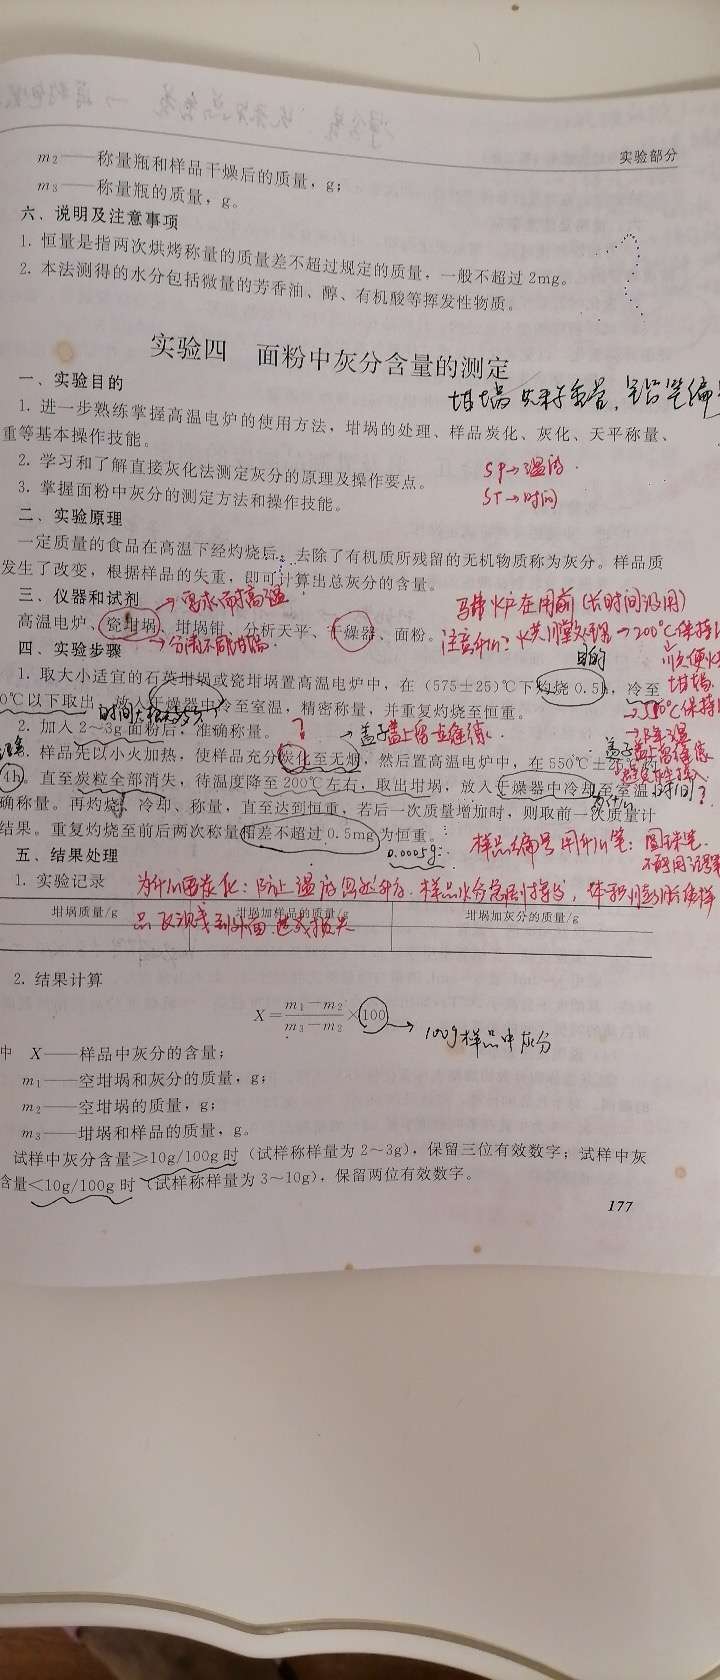 实验部分
m₂——称量瓶和样品干燥后的质量，g；
m₃——称量瓶的质量，g。
六、说明及注意事项
1. 恒量是指两次烘烤称量的质量差不超过规定的质量，一般不超过 2mg。
2. 本法测得的水分包括微量的芳香油、醇、有机酸等挥发性物质。
实验四　面粉中灰分含量的测定
一、实验目的
1. 进一步熟练掌握高温电炉的使用方法，坩埚的处理、样品炭化、灰化、天平称量、
重等基本操作技能。
2. 学习和了解直接灰化法测定灰分的原理及操作要点。
SP→温度.
3. 掌握面粉中灰分的测定方法和操作技能。
ST→时间
二、实验原理
一定质量的食品在高温下经灼烧后，去除了有机质所残留的无机物质称为灰分。样品质
发生了改变，根据样品的失重，即可计算出总灰分的含量。
三、仪器和试剂
→要求耐高温
马弗炉在用前(长时间没用)
高温电炉、瓷坩埚、坩埚钳、分析天平、干燥器、面粉。
→200℃保持
四、实验步骤
目的
1. 取大小适宜的石英坩埚或瓷坩埚置高温电炉中，在（575±25）℃下灼烧 0.5h，冷至
0℃以下取出，放入干燥器中冷至室温，精密称量，并重复灼烧至恒重。
2. 加入 2～3g 面粉后，准确称量。
?
→降温
. 样品先以小火加热，使样品充分炭化至无烟，然后置高温电炉中，在 550℃±25℃灼
4h。直至炭粒全部消失，待温度降至 200℃左右，取出坩埚，放入干燥器中冷却至室温，
时间?
确称量。再灼烧、冷却、称量，直至达到恒重，若后一次质量增加时，则取前一次质量计
结果。重复灼烧至前后两次称量相差不超过 0.5mg 为恒重。
0.0005g
样品编号用什么笔：圆珠笔.
五、结果处理
1. 实验记录
坩埚质量/g　坩埚加样品的质量/g　坩埚加灰分的质量/g
2. 结果计算
X=(m₁−m₂)/(m₃−m₂)×100
→100g样品中灰分
中　X——样品中灰分的含量；
m₁——空坩埚和灰分的质量，g；
m₂——空坩埚的质量，g；
m₃——坩埚和样品的质量，g。
试样中灰分含量≥10g/100g 时（试样称样量为 2～3g），保留三位有效数字；试样中灰
含量<10g/100g 时（试样称样量为 3～10g），保留两位有效数字。
177